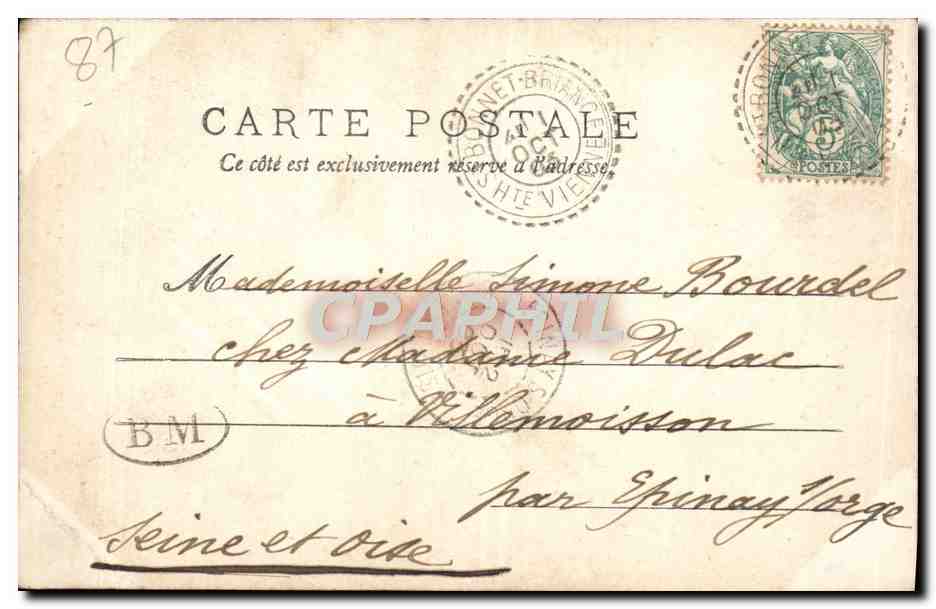 87
CARTE POSTALE
Ce côté est exclusivement réservé à l'adresse
ST BONNET-BRIANCE
OCT
HTE VIENNE
5
POSTES
OCT
Mademoiselle Simone Bourdel
CPAPHIL
chez Madame Dulac
à Villemoisson
BM
par Epinay s/orge
Seine et Oise